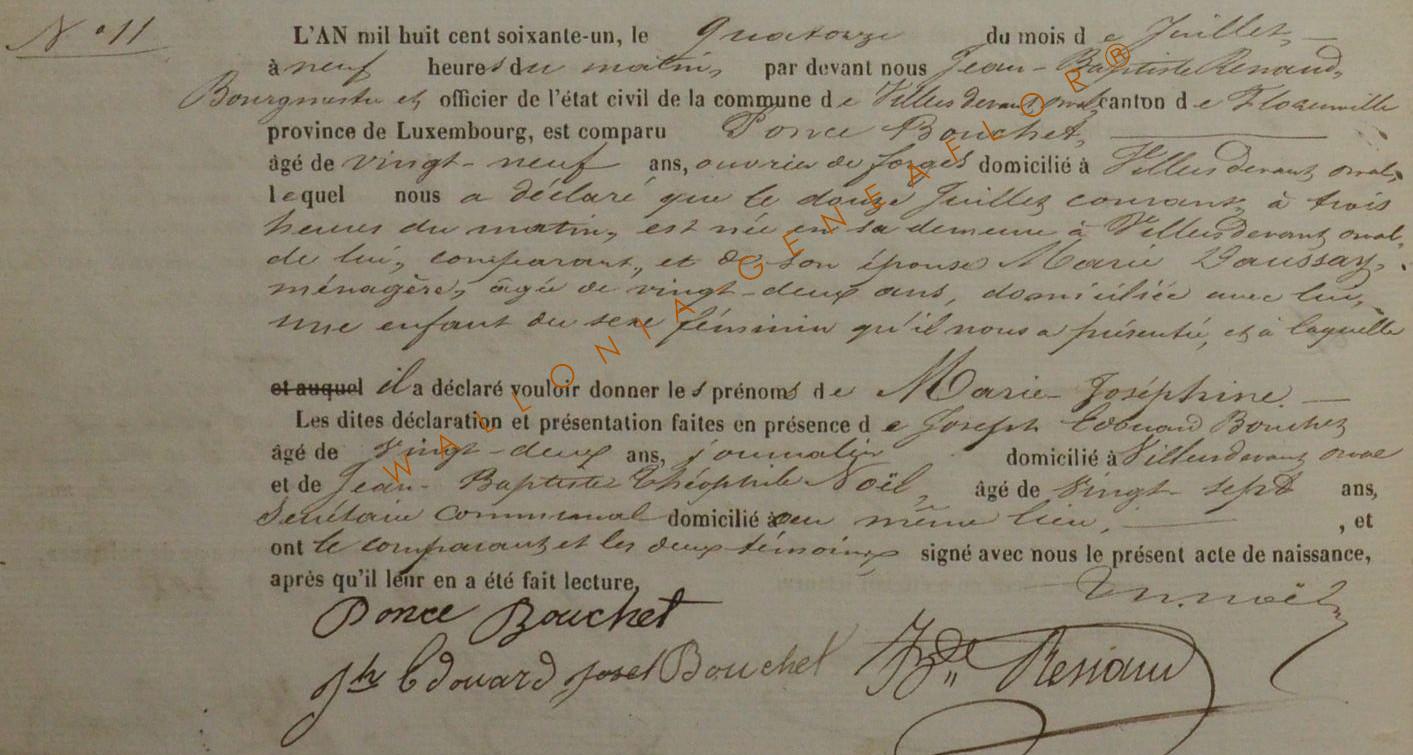 N° 11
L'AN mil huit cent soixante-un, le Quatorze du mois de Juillet,
à neuf heures du matin, par devant nous Jean-Baptiste Renaud,
Bourgmestre et officier de l'état civil de la commune de Villers devant orval, canton de Florenville
province de Luxembourg, est comparu Ponce Bouchet,
âgé de vingt-neuf ans, ouvrier de forges domicilié à Villers devant orval,
lequel nous a déclaré que le douze Juillet courant, à trois
heures du matin, est née en sa demeure à Villers devant orval,
de lui, comparant, et de son épouse Marie
ménagère, âgée de vingt-deux ans, domiciliée avec lui,
une enfant du sexe féminin qu'il nous a présentée, et à laquelle
et auquel il a déclaré vouloir donner les prénoms de Marie-Joséphine.
Les dites déclaration et présentation faites en présence de Joseph Edouard Bouchet
âgé de vingt-deux ans, journalier domicilié à Villers devant orval
et de Jean-Baptiste Théophile Noël, âgé de vingt-sept ans,
Secrétaire communal domicilié au même lieu, , et
ont le comparant et les deux témoins, signé avec nous le présent acte de naissance,
après qu'il leur en a été fait lecture,
noël
Ponce Bouchet
Jph Edouard Bouchet
Renaud
WALLONIA GENEAFLOR®